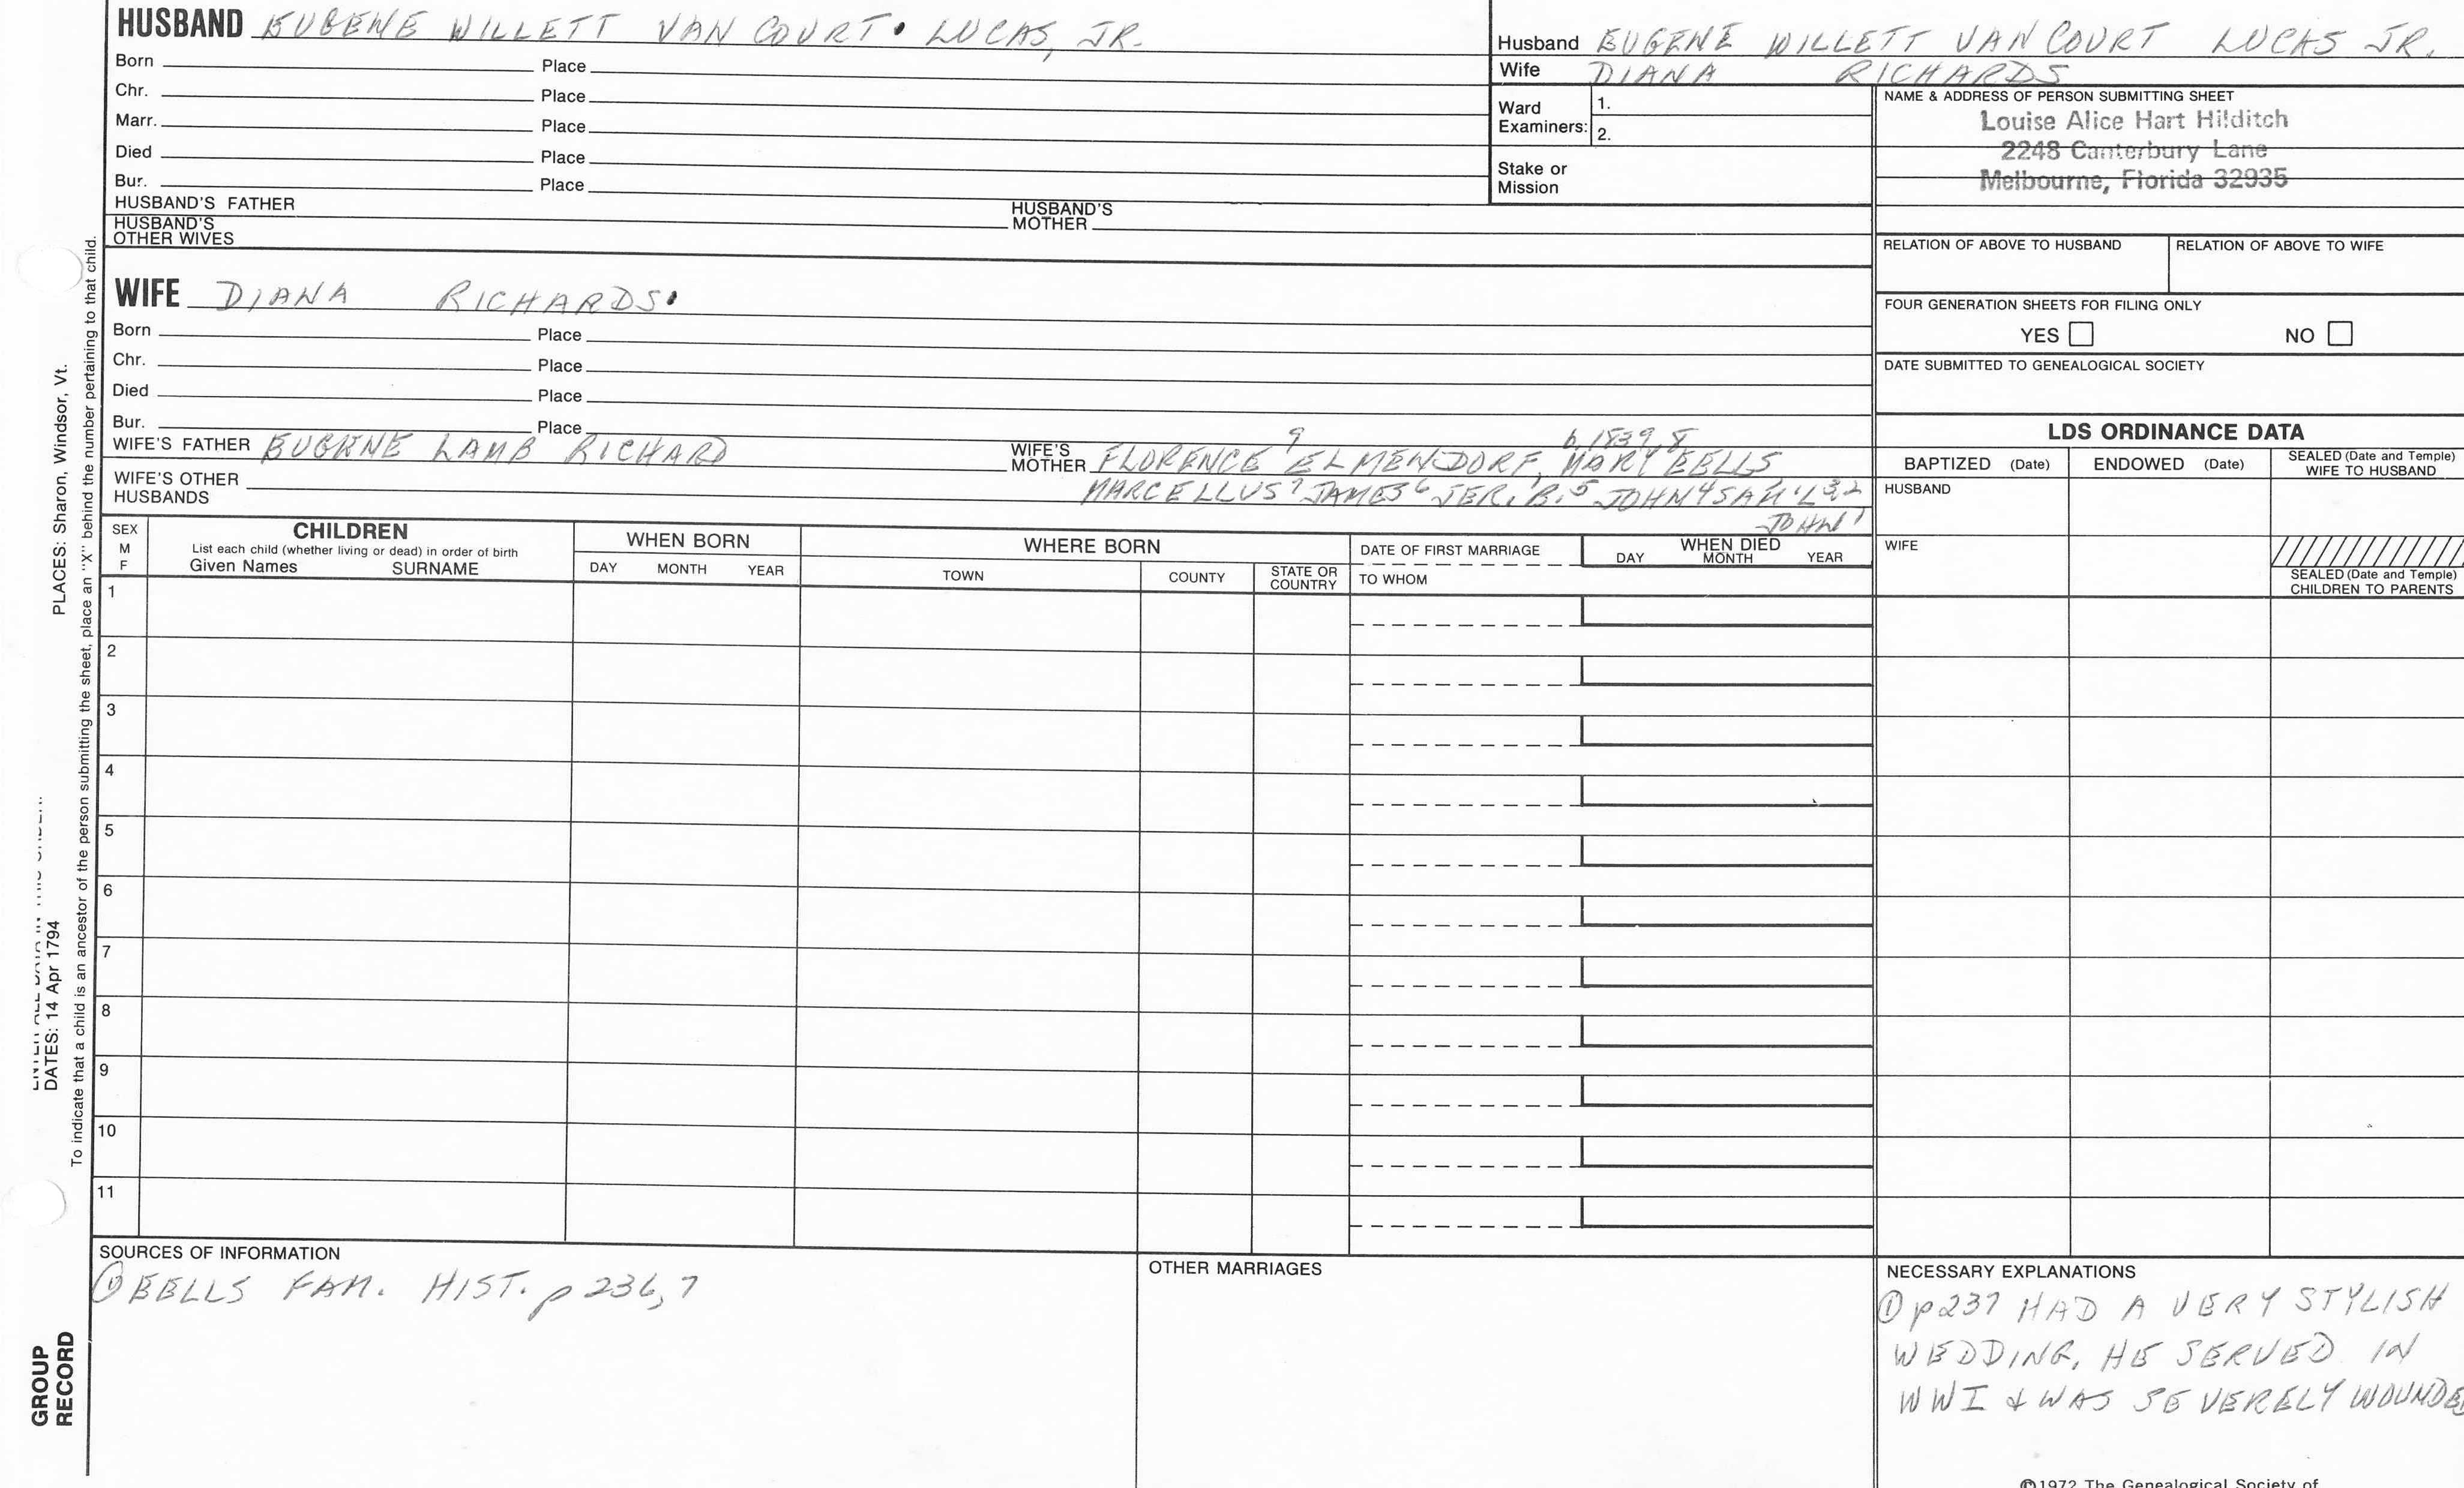 HUSBAND EUGENE WILLETT VAN COURT LUCAS, JR.
Born Place
Chr. Place
Marr. Place
Died Place
Bur. Place
HUSBAND'S FATHER HUSBAND'S MOTHER
HUSBAND'S OTHER WIVES
Husband EUGENE WILLETT VAN COURT LUCAS JR.
Wife DIANA RICHARDS
Ward Examiners: 1.
2.
Stake or Mission
NAME & ADDRESS OF PERSON SUBMITTING SHEET
Louise Alice Hart Hilditch
2248 Canterbury Lane
Melbourne, Florida 32935
RELATION OF ABOVE TO HUSBAND RELATION OF ABOVE TO WIFE
FOUR GENERATION SHEETS FOR FILING ONLY
YES NO
DATE SUBMITTED TO GENEALOGICAL SOCIETY
WIFE DIANA RICHARDS
Born Place
Chr. Place
Died Place
Bur. Place
WIFE'S FATHER EUGENE LAMB RICHARD
WIFE'S MOTHER FLORENCE 9 ELMENDORF, MARY EELLS, b. 1839, 8
MARCELLUS 7 JAMES 6 JER. B. 5 JOHN 4 SAM'L 3,2
JOHN 1
WIFE'S OTHER HUSBANDS
LDS ORDINANCE DATA
BAPTIZED (Date) ENDOWED (Date) SEALED (Date and Temple) WIFE TO HUSBAND
HUSBAND
WIFE
SEALED (Date and Temple) CHILDREN TO PARENTS
SEX M F
CHILDREN
List each child (whether living or dead) in order of birth
Given Names SURNAME
WHEN BORN
DAY MONTH YEAR
WHERE BORN
TOWN COUNTY STATE OR COUNTRY
DATE OF FIRST MARRIAGE
TO WHOM
WHEN DIED
DAY MONTH YEAR
1
2
3
4
5
6
7
8
9
10
11
SOURCES OF INFORMATION
① EELLS FAM. HIST. p 236, 7
OTHER MARRIAGES
NECESSARY EXPLANATIONS
① p237 HAD A VERY STYLISH
WEDDING, HE SERVED IN
WWI & WAS SEVERELY WOUNDED
©1972 The Genealogical Society of
PLACES: Sharon, Windsor, Vt.
DATES: 14 Apr 1794
To indicate that a child is an ancestor of the person submitting the sheet, place an "X" behind the number pertaining to that child.
GROUP
RECORD